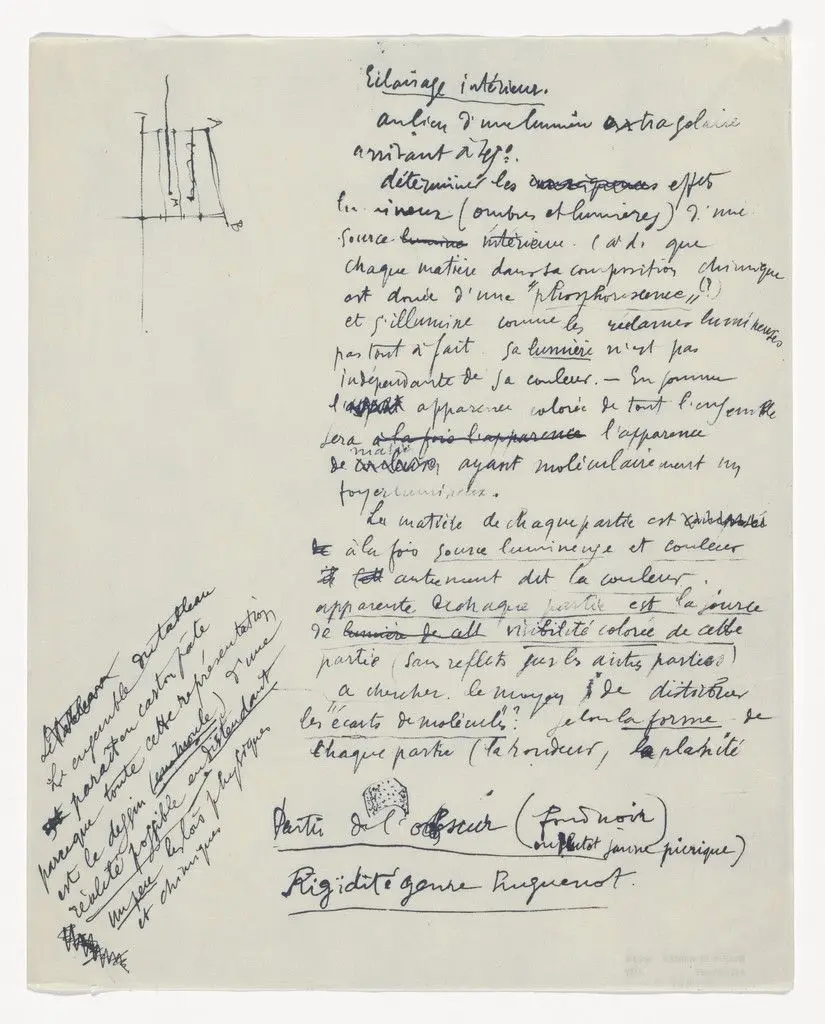 Eclairage intérieur.
au lieu d'une lumière extrasolaire
arrivant à 45°.
déterminer les effets
lumineux (ombres et lumières) d'une
source lumière intérieure. c.à.d. que
chaque matière dans sa composition chimique
est douée d'une "phosphorescence" (?)
et s'illumine comme les réclames lumineuses
pas tout à fait. sa lumière n'est pas
indépendante de sa couleur. — En somme
l' apparence colorée de tout l'ensemble
sera à la fois l'apparence l'apparence
de matière ayant moléculairement un
foyer lumineux.
La matière de chaque partie est
à la fois source lumineuse et couleur
autrement dit la couleur
apparente de chaque partie est la source
de lumière de cette visibilité colorée de cette
partie (sans reflets sur les autres parties)
a chercher. le moyen de distribuer
les "écarts de molécules"? selon la forme de
chaque partie (la rondeur, la planité
Partir de l'obscur (fond noir)
ou plutot jaune picrique)
Rigidité genre Huguenot.
Le tableau
Le ensemble du tableau
parait en carton pâte
parceque toute cette représentation
est le dessin (un moule) d'une
réalité possible en distendant
un peu les lois physiques
et chimiques
B